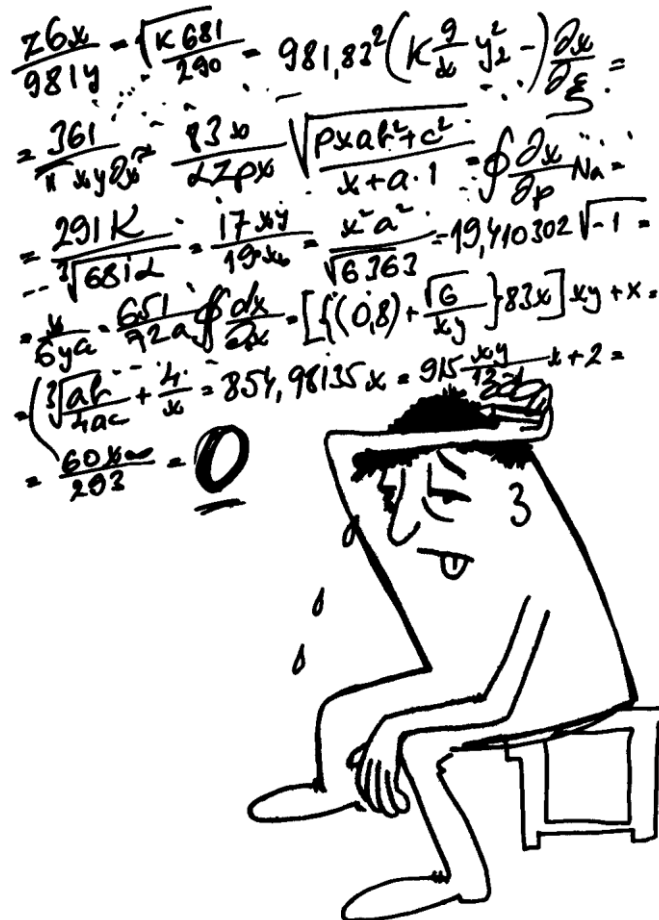 26x/981y = √(K681/290) = 981,83²(K 9/x y²₂ -) ∂x/∂ξ =
= 361/(π x y ∂x²) = 83x/(αZpx) √((pxab²+c²)/(x+a·1)) = ∮ ∂x/∂p Na =
= 291K/∛681α = 17xy/19x = x²a²/√6363 = 19,410302 √-1 =
= x/6ya = 651/72a ∮ dx/∂x = [{(0,8) + √6/xy} 83x] xy + x =
= (∛(ab/4ac) + 4/x = 854,98135x = 915 xy x + 2 =
= 60x∞/293 = 0